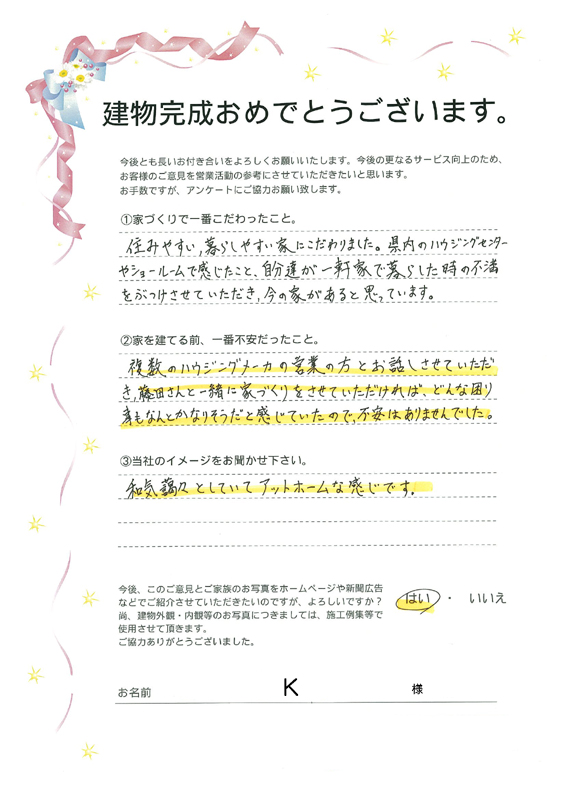 建物完成おめでとうございます。
今後とも長いお付き合いをよろしくお願いいたします。今後の更なるサービス向上のため、
お客様のご意見を営業活動の参考にさせていただきたいと思います。
お手数ですが、アンケートにご協力お願い致します。
①家づくりで一番こだわったこと。
住みやすい,暮らしやすい家にこだわりました。県内のハウジングセンター
やショールームで感じたこと、自分達が一軒家で暮らした時の不満
をぶつけさせていただき,今の家があると思っています。
②家を建てる前、一番不安だったこと。
複数のハウジングメーカの営業の方とお話しさせていただ
き,藤田さんと一緒に家づくりをさせていただければ、どんな困り
事もなんとかなりそうだと感じていたので,不安はありませんでした。
③当社のイメージをお聞かせ下さい。
和気藹々としていてアットホームな感じです。
今後、このご意見とご家族のお写真をホームページや新聞広告
などでご紹介させていただきたいのですが、よろしいですか?
はい ・ いいえ
尚、建物外観・内観等のお写真につきましては、施工例集等で
使用させて頂きます。
ご協力ありがとうございました。
お名前 K 様